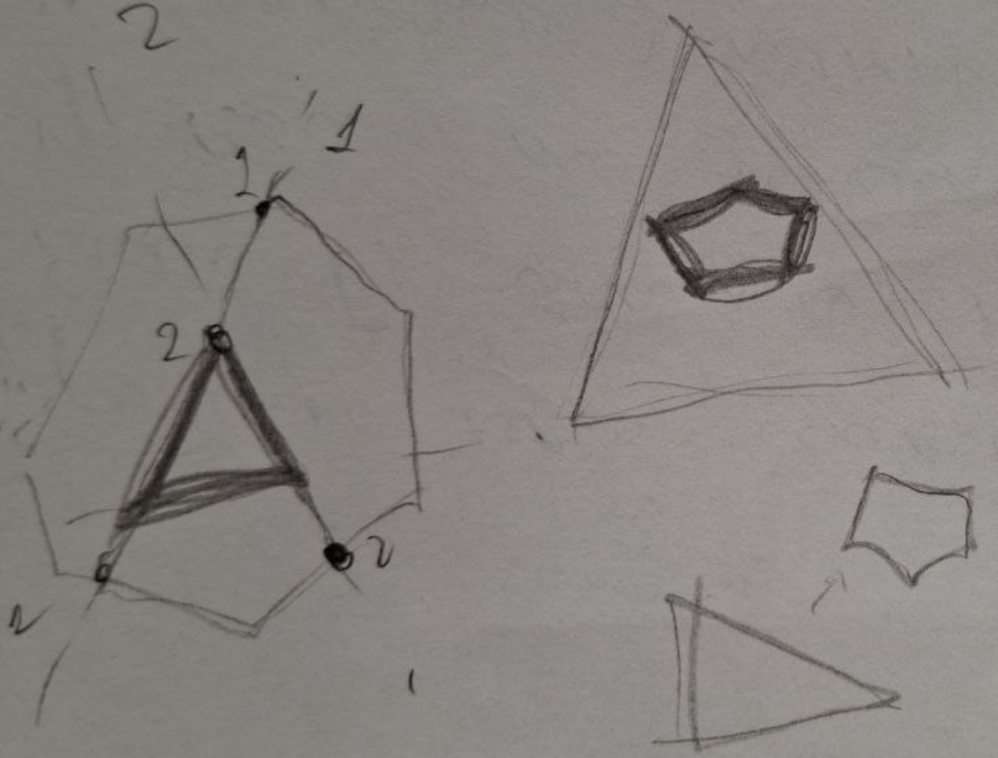 2
1
1
2
2
2